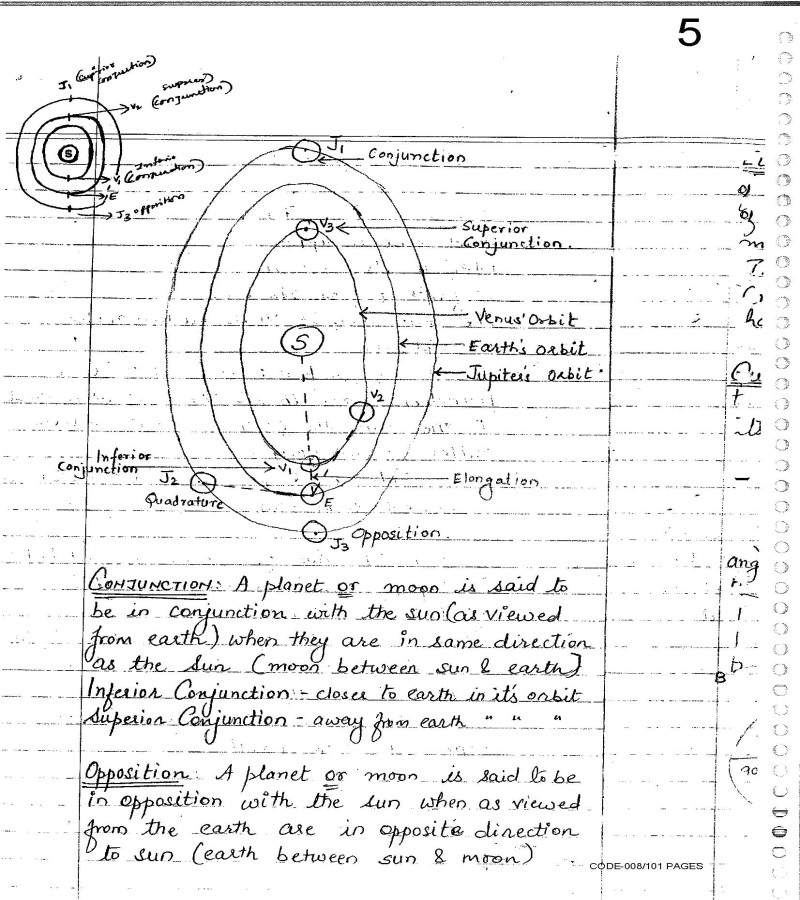 5
J1 (Superior
conjunction)
V2
(conjunction)
S
V1
(conjunction)
E
J3 opposition
J1
Conjunction
V3
Superior
Conjunction.
Venus' Orbit
S
Earth's orbit
Jupiter's Orbit
V2
Inferior
Conjunction
V1
J2
Elongation
Quadrature
E
Opposition.
J3
CONJUNCTION: A planet or moon is said to
be in conjunction with the sun (as viewed
from earth) when they are in same direction
as the Sun (moon between sun & earth)
Inferior Conjunction :- closer to earth in it's orbit
Superior Conjunction - away from earth " " "
Opposition: A planet or moon is said to be
in opposition with the sun when as viewed
from the earth are in opposite direction
to sun (earth between sun & moon)
ang
B
90
CODE-008/101 PAGES